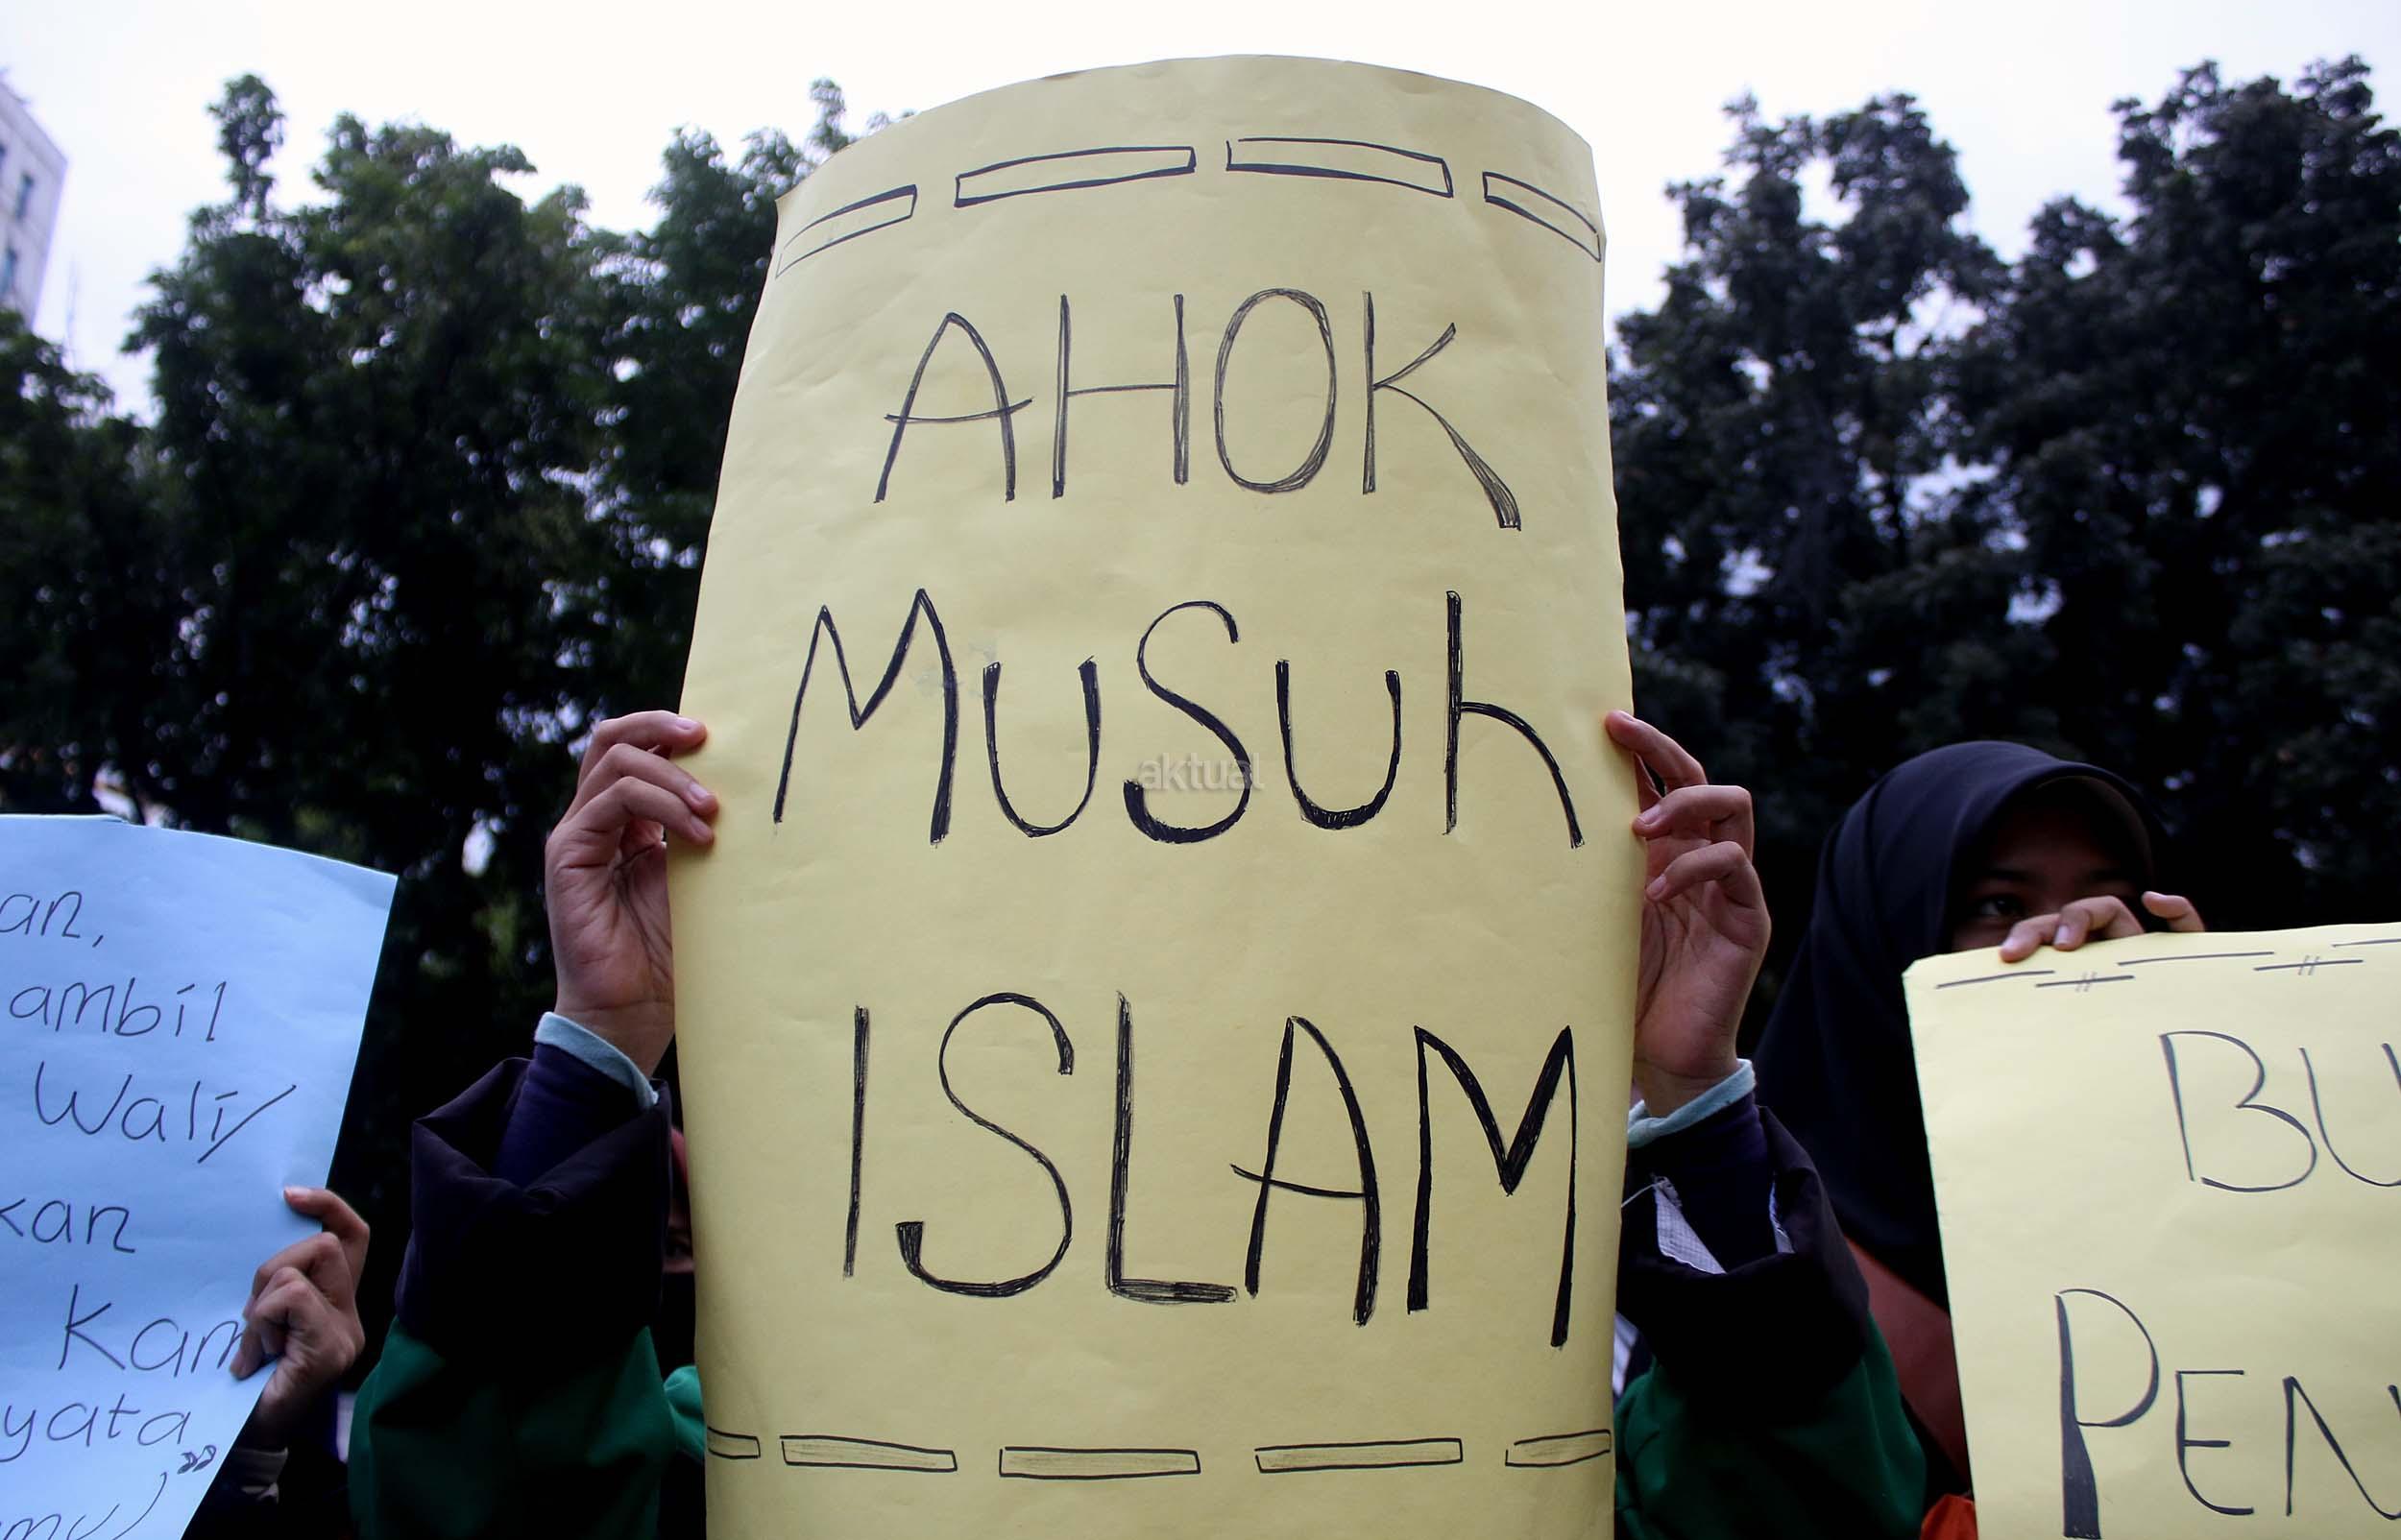 AHOK
MUSUh
ISLAM
aktual
an,
ambil
Wali
kan
Kam
yata
BU
PEN